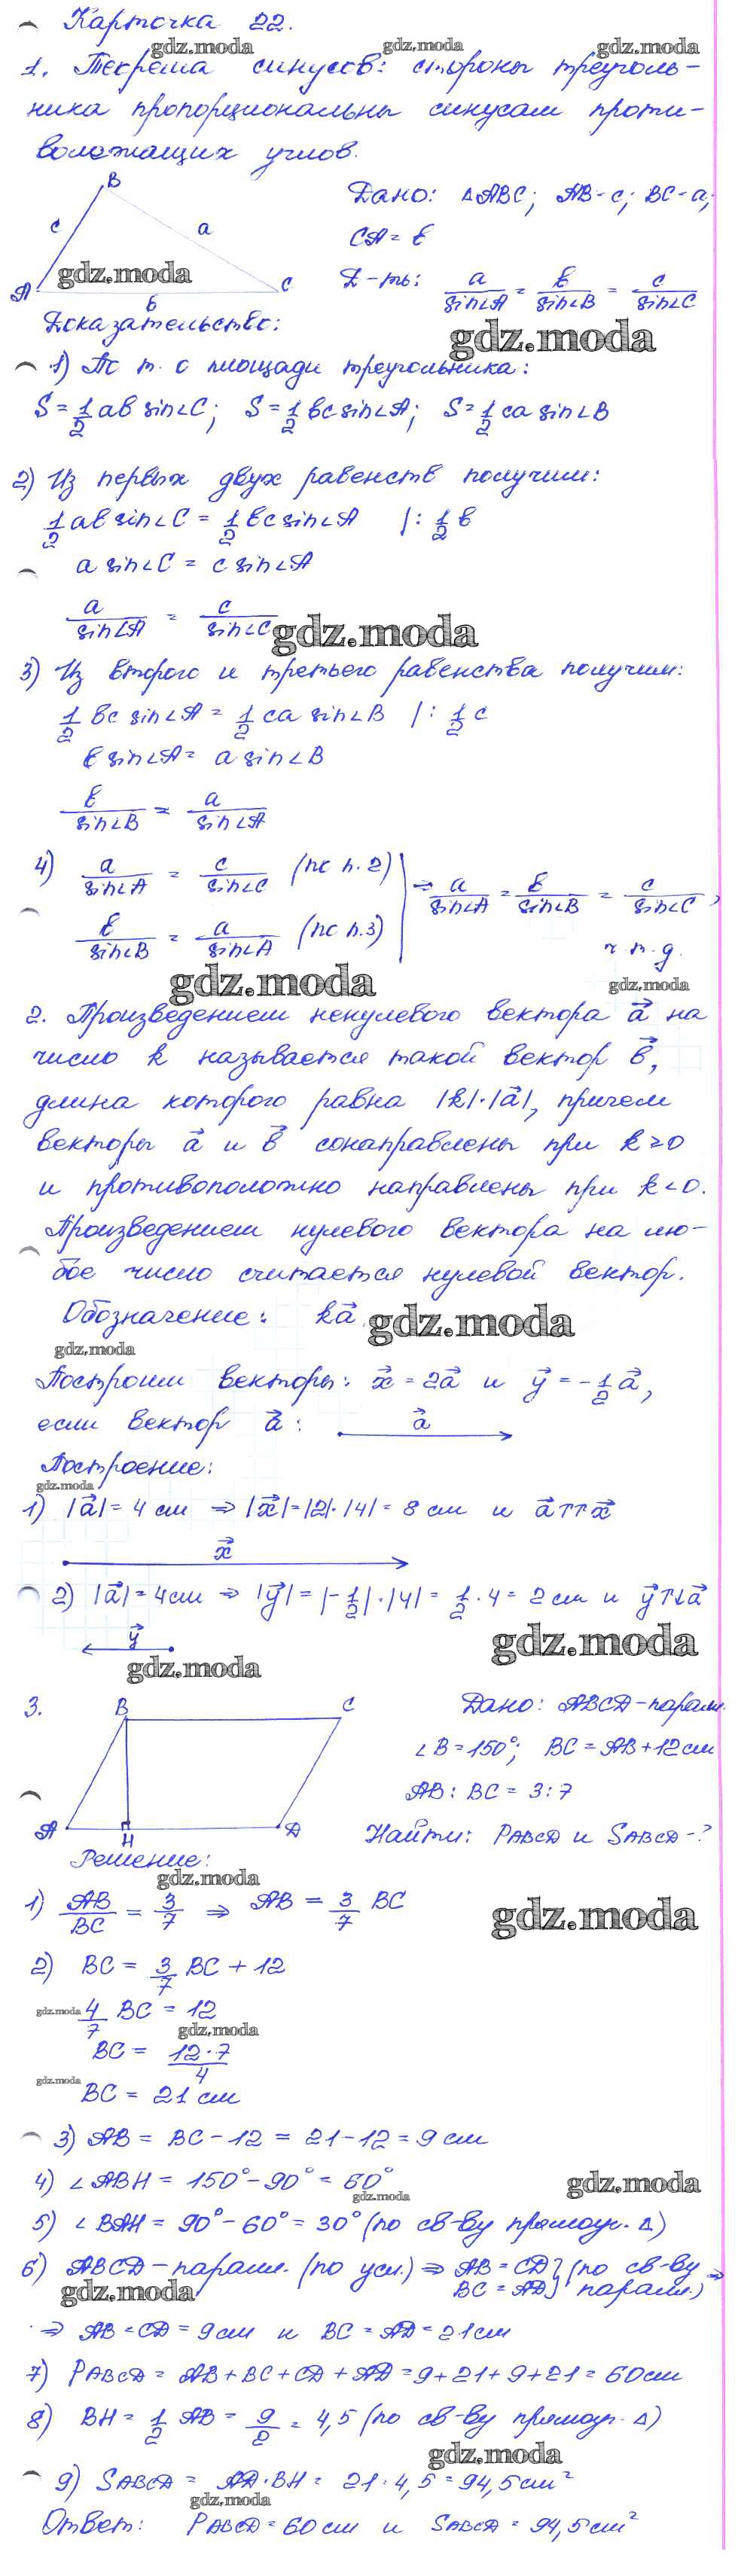 Карточка 22.
gdz.moda gdz.moda gdz.moda
1. Теорема синусов: стороны треуголь-
ника пропорциональны синусам проти-
волежащих углов.
B
c a
A b C
gdz.moda
Дано: △ABC; AB-c; BC-a;
CA=b
Д-ть: a/sin∠A = b/sin∠B = c/sin∠C
Доказательство:
gdz.moda
1) По т. о площади треугольника:
S=1/2 ab sin∠C; S=1/2 bc sin∠A; S=1/2 ca sin∠B
2) Из первых двух равенств получим:
1/2 ab sin∠C = 1/2 bc sin∠A |: 1/2 b
a sin∠C = c sin∠A
a/sin∠A = c/sin∠C
gdz.moda
3) Из второго и третьего равенства получим:
1/2 bc sin∠A = 1/2 ca sin∠B |: 1/2 c
b sin∠A = a sin∠B
b/sin∠B = a/sin∠A
4) a/sin∠A = c/sin∠C (по п.2)
b/sin∠B = a/sin∠A (по п.3)
⇒ a/sin∠A = b/sin∠B = c/sin∠C,
ч.т.д.
gdz.moda gdz.moda
2. Произведением ненулевого вектора a⃗ на
число k называется такой вектор b⃗,
длина которого равна |k|·|a⃗|, причем
векторы a⃗ и b⃗ сонаправлены при k≥0
и противоположно направлены при k<0.
Произведением нулевого вектора на лю-
бое число считается нулевой вектор.
Обозначение: ka⃗
gdz.moda
gdz.moda
Построим векторы: x⃗ = 2a⃗ и y⃗ = -1/2 a⃗,
если вектор a⃗:
a⃗
Построение:
gdz.moda
1) |a⃗| = 4 см ⇒ |x⃗| = |2|·|4| = 8 см и a⃗↑↑x⃗
x⃗
2) |a⃗| = 4см ⇒ |y⃗| = |-1/2|·|4| = 1/2·4 = 2 см и y⃗↑↓a⃗
y⃗
gdz.moda
gdz.moda
3.
B C
A H D
Дано: ABCD-парал.
∠B=150°; BC=AB+12см
AB:BC = 3:7
Найти: PABCD и SABCD-?
Решение:
gdz.moda
1) AB/BC = 3/7 ⇒ AB = 3/7 BC
gdz.moda
2) BC = 3/7 BC + 12
gdz.moda
4/7 BC = 12
gdz.moda
BC = 12·7/4
gdz.moda
BC = 21 см
3) AB = BC-12 = 21-12 = 9 см
4) ∠ABH = 150°-90° = 60°
gdz.moda gdz.moda
5) ∠BAH = 90°-60° = 30° (по св-ву прямоуг. △)
6) ABCD-парал. (по усл.) ⇒ AB=CD BC=AD} (по св-ву парал.) ⇒
gdz.moda
⇒ AB=CD=9см и BC=AD=21см
7) PABCD = AB+BC+CD+AD = 9+21+9+21 = 60см
8) BH = 1/2 AB = 9/2 = 4,5 (по св-ву прямоуг. △)
gdz.moda
9) SABCD = AD·BH = 21·4,5 = 94,5см²
gdz.moda
Ответ: PABCD=60см и SABCD=94,5см²